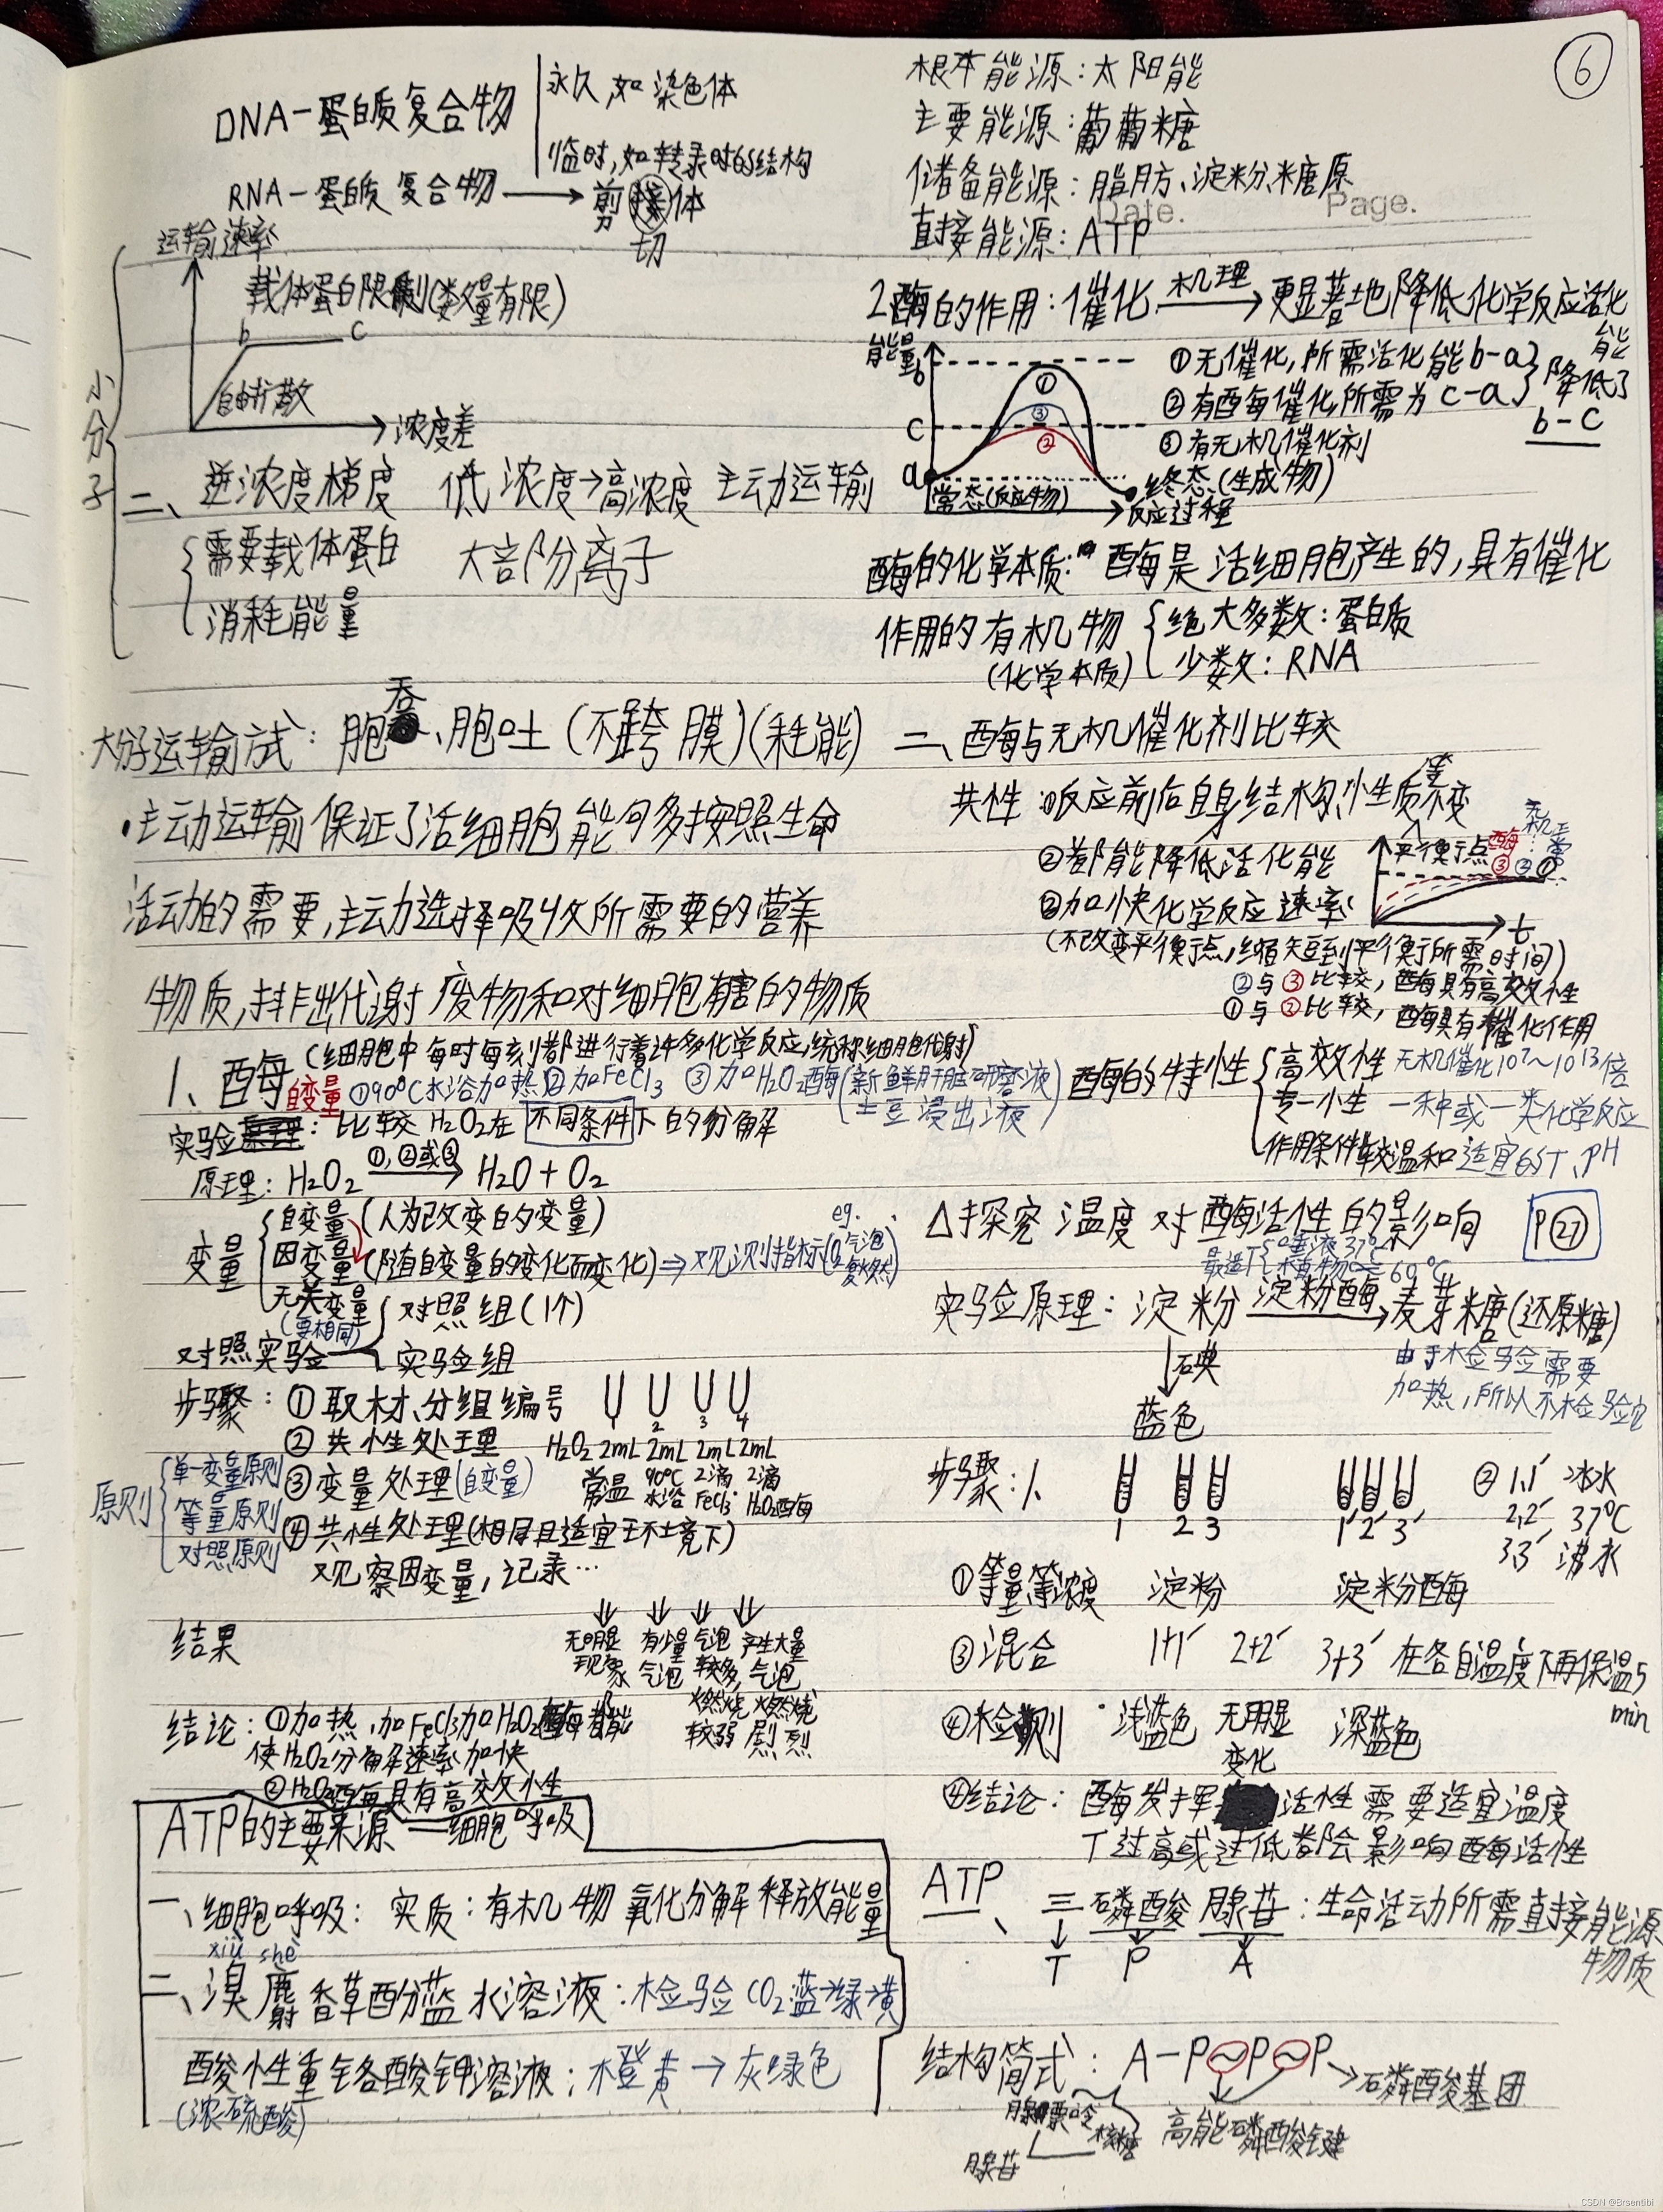 ⑥
DNA-蛋白质复合物
永久,如染色体
临时,如转录时的结构
RNA-蛋白质复合物→剪接体
切
运输速率
载体蛋白限制(数量有限)
b c
自由扩散
浓度差
小分子
二、逆浓度梯度 低浓度→高浓度 主动运输
需要载体蛋白 大部分离子
消耗能量
大分子运输方式:胞吞、胞吐(不跨膜)(耗能)
·主动运输保证了活细胞能够按照生命
活动的需要,主动选择吸收所需要的营养
物质,排出代谢废物和对细胞有害的物质
1、酶(细胞中每时每刻都进行着许多化学反应,统称细胞代谢)
自变量 ①90℃水浴加热 ②加FeCl3 ③加H2O2酶(新鲜肝脏研磨液
土豆浸出液)
实验:比较H2O2在不同条件下的分解
原理:H2O2 ①,②或③→ H2O+O2
变量
自变量(人为改变的变量)
因变量(随自变量的变化而变化)⇒观测指标(eg. O2气泡
复燃)
无关变量
(要相同)
对照实验
对照组(1个)
实验组
步骤:①取材、分组编号
1 2 3 4
②共性处理 H2O2 2mL 2mL 2mL 2mL
③变量处理(自变量) 常温 90℃水浴 2滴FeCl3 2滴H2O2酶
④共性处理(相同且适宜环境下)
观察因变量,记录…
原则
单一变量原则
等量原则
对照原则
结果 无明显现象 有少量气泡 气泡较多,燃烧较弱 产生大量气泡 燃烧剧烈
结论:①加热,加FeCl3加H2O2酶都能
使H2O2分解速率加快
②H2O2酶具有高效性
ATP的主要来源——细胞呼吸
一、细胞呼吸:实质:有机物氧化分解释放能量
xiù shè
二、溴麝香草酚蓝水溶液:检验CO2:蓝→绿→黄
酸性重铬酸钾溶液:橙黄→灰绿色
(浓硫酸)
根本能源:太阳能
主要能源:葡萄糖
储备能源:脂肪、淀粉、糖原
Date. Page.
直接能源:ATP
2酶的作用:催化 机理→更显著地降低化学反应活化能
能量
b
c
a
① ③ ②
常态(反应物)
终态(生成物)
反应过程
①无催化,所需活化能b-a
②有酶催化所需为c-a
降低了
b-c
③有无机催化剂
酶的化学本质:酶是活细胞产生的,具有催化
作用的有机物
(化学本质)
绝大多数:蛋白质
少数:RNA
二、酶与无机催化剂比较
共性:①反应前后自身结构、性质等不变
②都能降低活化能
③加快化学反应速率
(不改变平衡点,缩短到平衡所需时间)
平衡点 酶③ 无机② 常①
t
②与③比较,酶具有高效性
①与③比较,酶具有催化作用
酶的特性
高效性 无机催化10⁷~10¹³倍
专一性 一种或一类化学反应
作用条件较温和 适宜的T、PH
△探究温度对酶活性的影响 P㉗
最适T 唾液37℃
60℃
实验原理:淀粉 淀粉酶→麦芽糖(还原糖)
↓碘
蓝色
由于检验需要
加热,所以不检验它
步骤:1.
1 2 3 1′ 2′ 3′
②1,1′ 冰水
2,2′ 37℃
3,3′ 沸水
①等量等浓度 淀粉 淀粉酶
③混合 1+1′ 2+2′ 3+3′ 在各自温度下再保温5
min
④检测 浅蓝色 无明显变化 深蓝色
④结论:酶发挥活性需要适宜温度
T过高或过低都会影响酶活性
ATP
一、三磷酸腺苷:生命活动所需直接能源
物质
T P A
结构简式:A-P~P~P→磷酸基团
腺嘌呤 核糖
高能磷酸键
腺苷
CSDN @Brsentibi